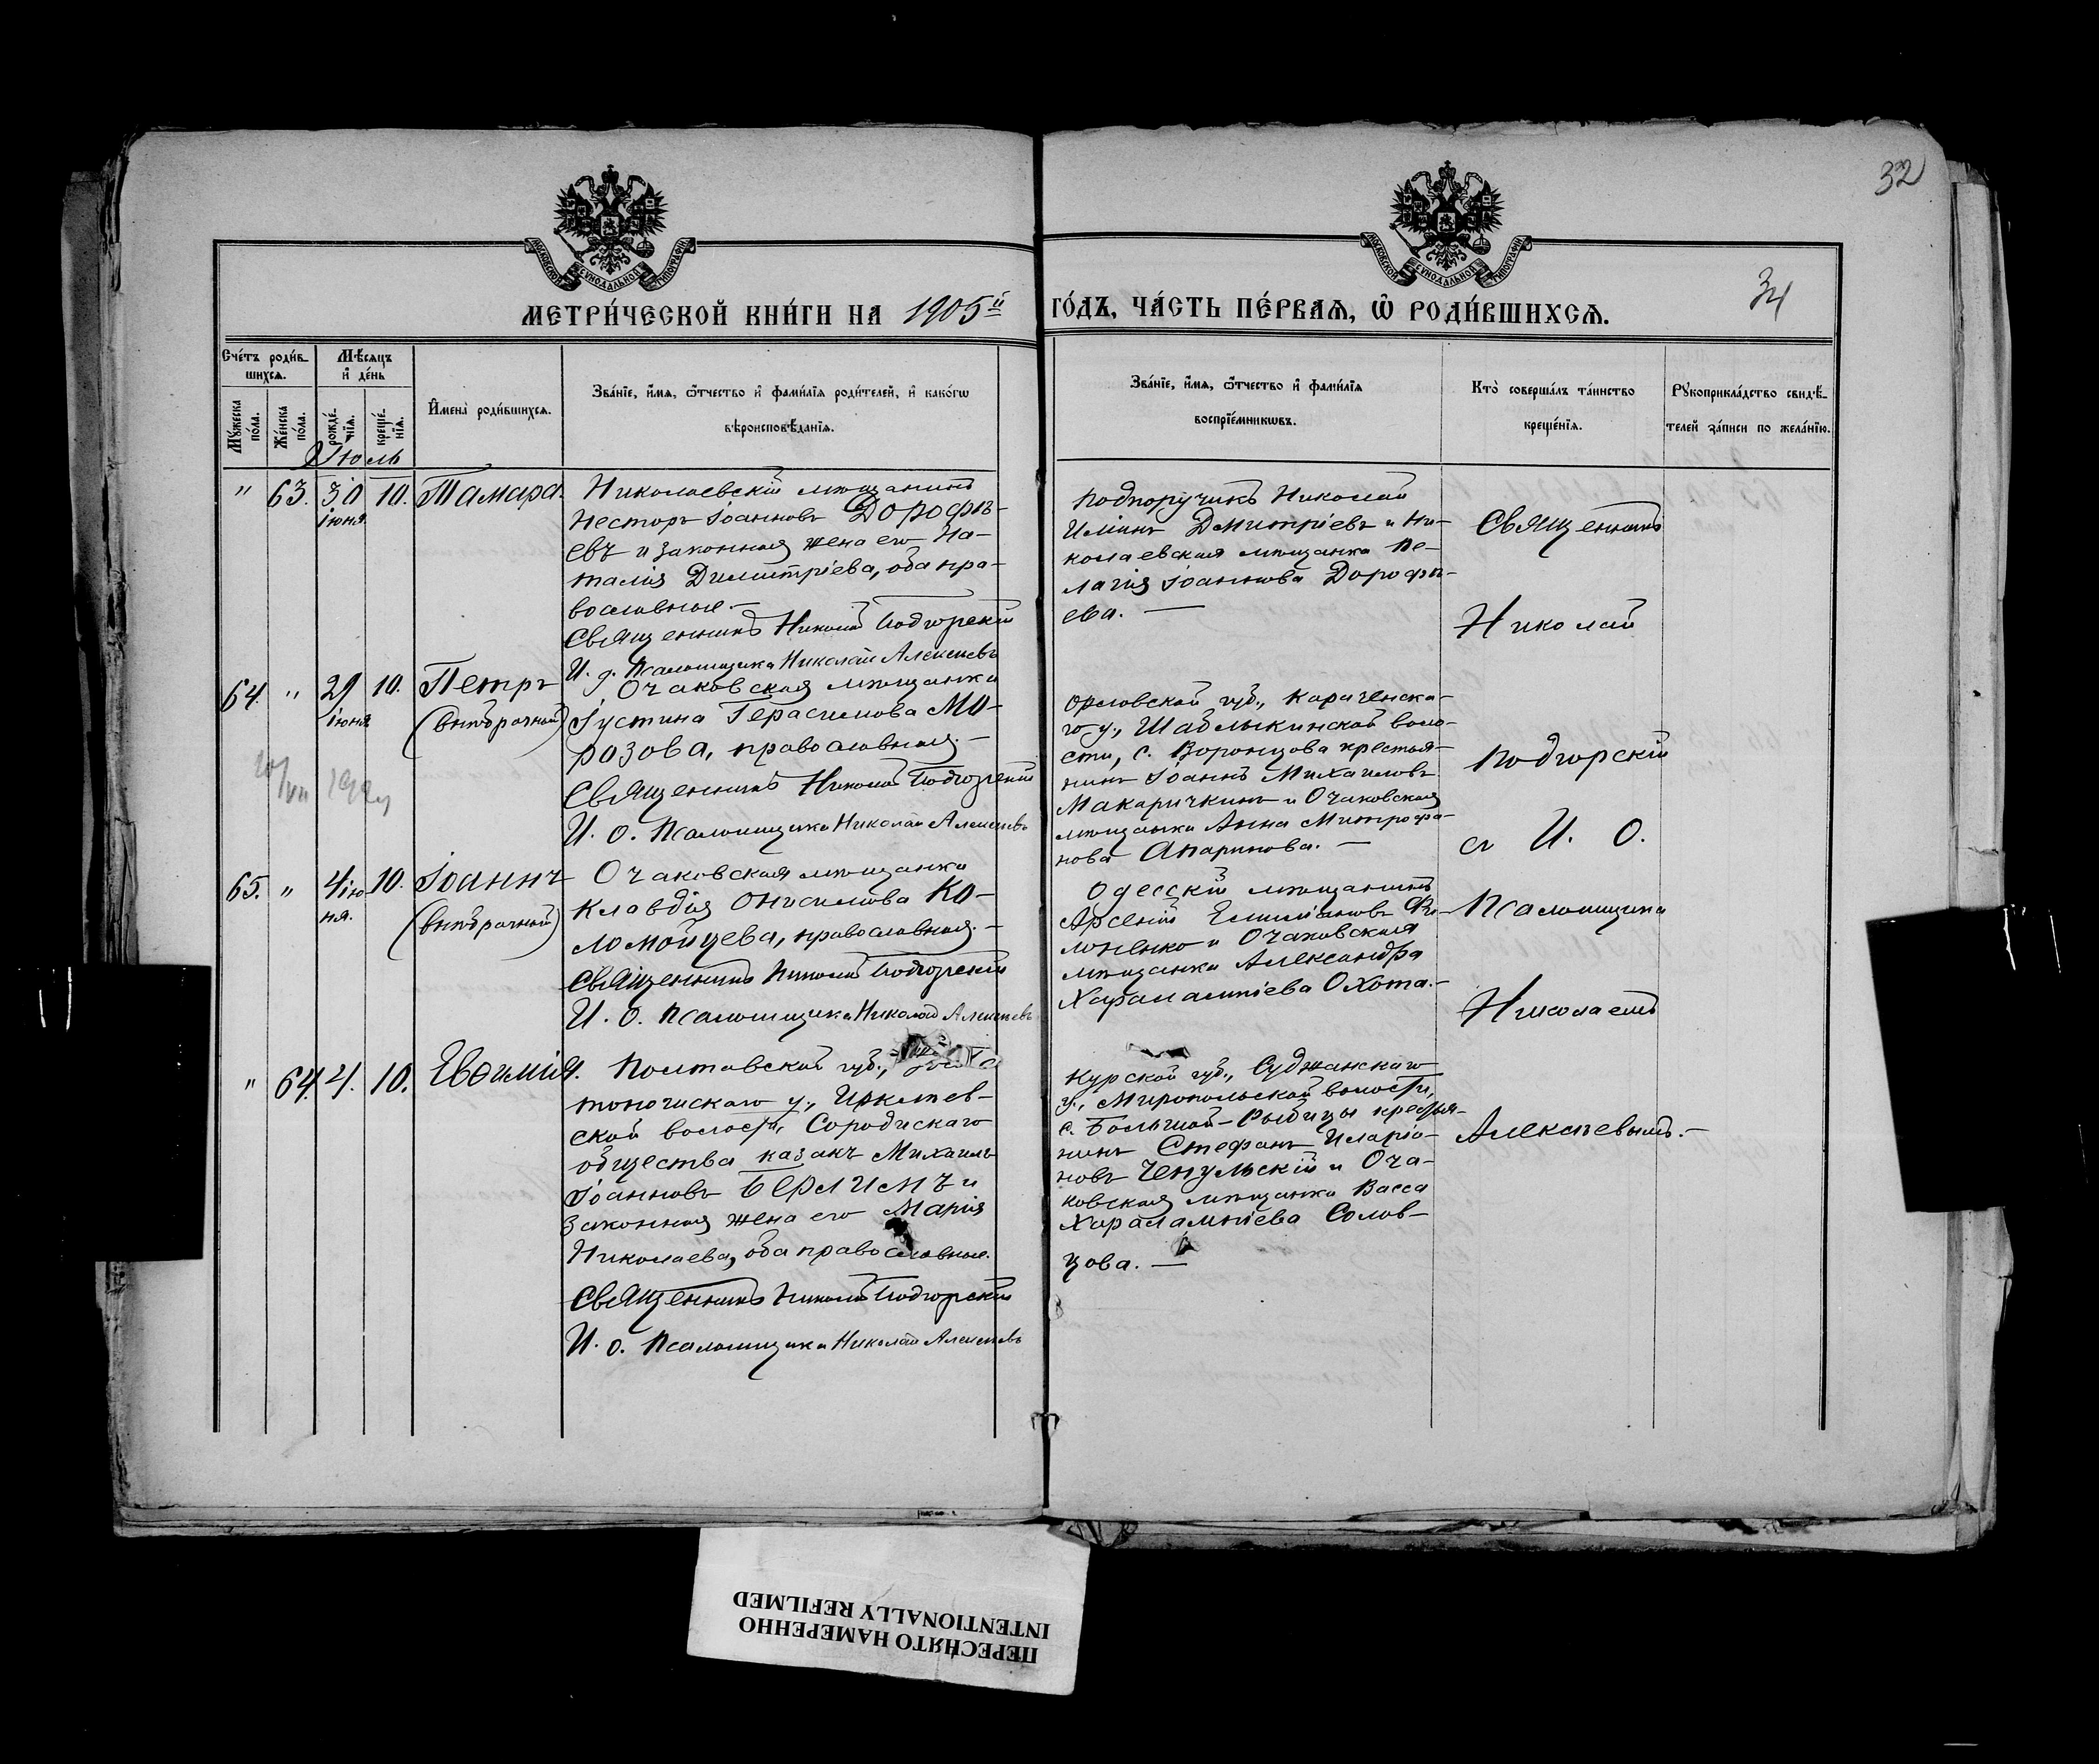 32
34
МОСКОВСКОЙ СУНОДАЛЬНОЙ ТИПОГРАФІИ
МОСКОВСКОЙ СУНОДАЛЬНОЙ ТИПОГРАФІИ
МЕТРИ́ЧЕСКОЙ КНИ́ГИ НА 1905й ГО́ДЪ, ЧА́СТЬ ПЕ́РВАѦ, Ѽ РОДИ́ВШИХСѦ.
Сче́тъ роди́в-
шихсѧ.
Мѣ́сѧцъ
и҆ де́нь
Мꙋ́жеска по́ла.
Же́нска по́ла.
рожде́-
нїѧ.
креще́-
нїѧ.
И҆мена̀ роди́вшихсѧ.
Зва́нїе, и҆́мѧ, ѻ҆́тчество и҆ фами́лїѧ роди́телей, и҆ како́гѡ
вѣроисповѣ́данїѧ.
Зва́нїе, и҆́мѧ, ѻ҆́тчество и҆ фами́лїѧ
воспрїе́мникѡвъ.
Кто̀ соверша́лъ та́инство
креще́нїѧ.
Рꙋкоприкла́дство свидѣ́-
телей за́писи по жела́нїю.
Іюль
" 63. 30 іюня 10. Тамара.
Николаевскій мѣщанинъ
Несторъ Іоанновъ Дорофѣ-
евъ и законная жена его На-
талія Димитріева, оба пра-
вославные.—
Священникъ Николай Подгорскій
И. д. Псаломщика Николай Алексѣевъ
Подпоручикъ Николай
Иліинъ Дмитріевъ и Ни-
колаевская мѣщанка Пе-
лагія Іоаннова Дорофѣ-
ева.—
64. " 29 іюня 10. Петръ
(внѣбрачный)
Очаковская мѣщанка
Іустина Герасимова Мо-
розова, православная.—
Священникъ Николай Подгорскій
И. о. Псаломщика Николай Алексѣевъ
Орловской губ., Карачевска-
го у., Шаблыкинской воло-
сти, с. Воронцова крестья-
нинъ Іоаннъ Михаиловъ
Макаричкинъ и Очаковская
мѣщанка Анна Митрофа-
нова Апаринова.—
65. " 4 іюня. 10. Іоаннъ
(внѣбрачный)
Очаковская мѣщанка
Клавдія Онисимова Ко-
ломойцева, православная.—
Священникъ Николай Подгорскій
И. о. Псаломщика Николай Алексѣевъ
Одесскій мѣщанинъ
Арсеній Емиліановъ
лоненко и Очаковская
мѣщанка Александра
Харалампіева Охота.—
" 64. 4. 10. Евѳимія.
Полтавской губ.,
тоношскаго у., Ирклѣев-
ской волости, Сородискаго
общества казакъ Михаилъ
Іоанновъ Берлимъ и
законная жена его Марія
Николаева, оба православные.
Священникъ Николай Подгорскій
И. о. Псаломщика Николай Алексѣевъ
Курской губ., Суджанскаго
у., Миропольской волости,
с. Большой-Рыбицы крестья-
нинъ Стефанъ Иларіо-
новъ Чепульскій и Оча-
ковская мѣщанка Васса
Харалампіева Солов-
цова.—
Священникъ
Николай
Подгорскій
съ И. О.
Псаломщика
Николаемъ
Алексѣевымъ.—
ПЕРЕСНЯТО НАМЕРЕННО
INTENTIONALLY REFILMED